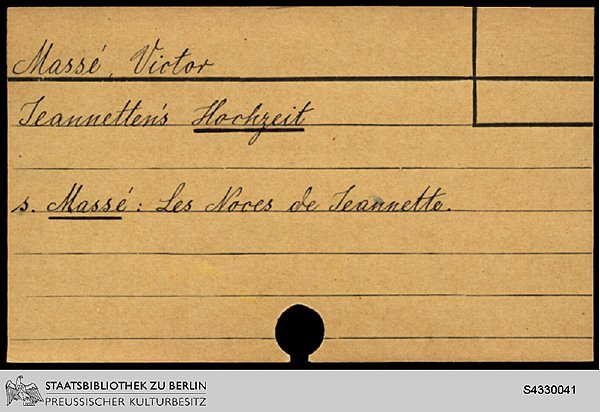 Massé, Victor
Jeannetten's Hochzeit
s. Massé: Les Noces de Jeannette.
STAATSBIBLIOTHEK ZU BERLIN
PREUSSISCHER KULTURBESITZ
S4330041